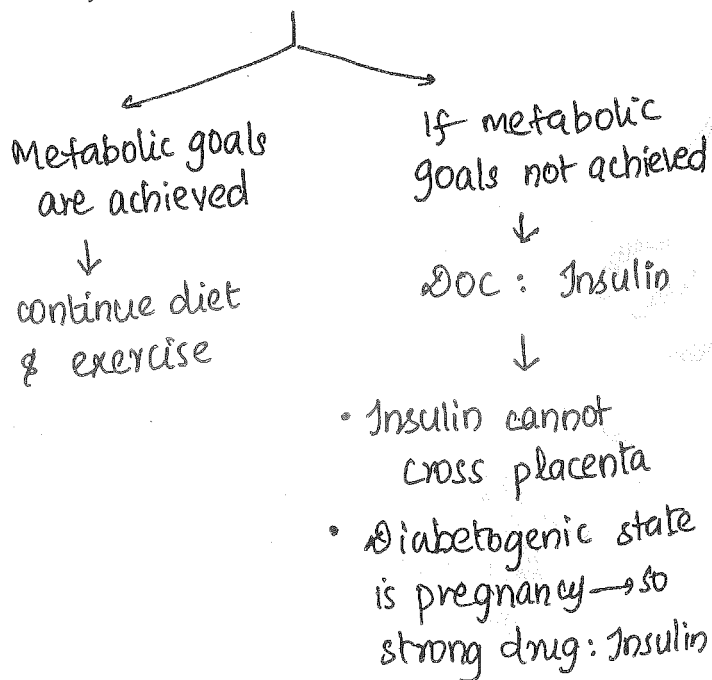 Metabolic goals
are achieved
↓
continue diet
& exercise
If metabolic
goals not achieved
↓
DOC : Insulin
↓
• Insulin cannot
cross placenta
• Diabetogenic state
is pregnancy → so
strong drug : Insulin